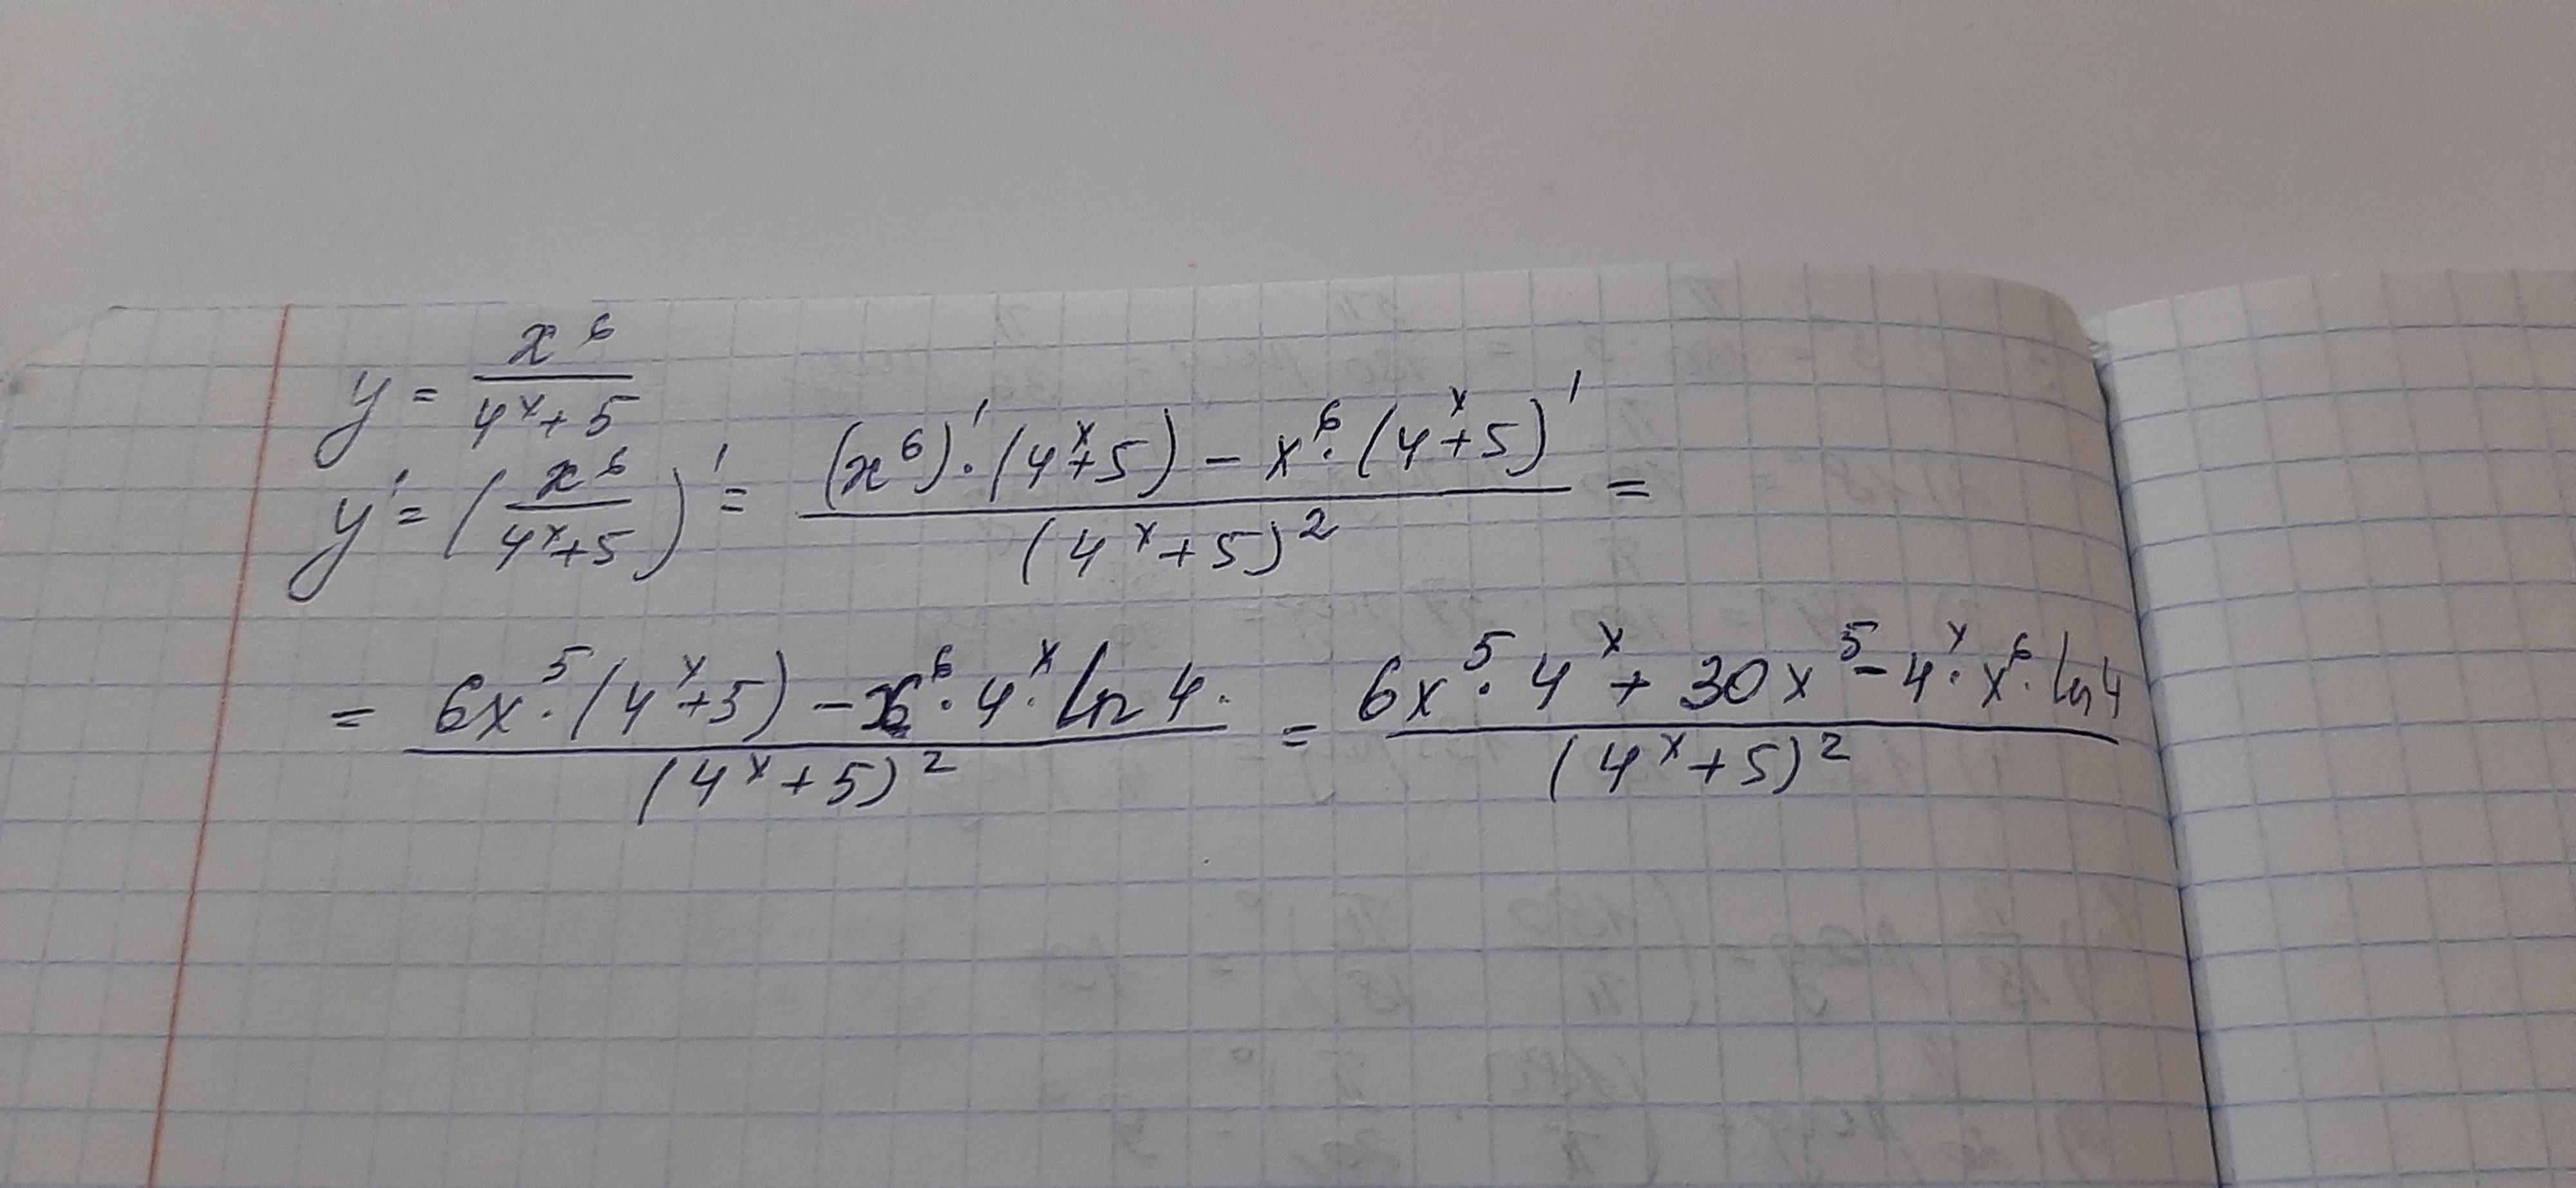 y = x⁶ / (4ˣ + 5)
y' = (x⁶ / (4ˣ+5))' = ((x⁶)' · (4ˣ+5) − x⁶ · (4ˣ+5)') / (4ˣ+5)² =
= (6x⁵ · (4ˣ+5) − x⁶ · 4ˣ · ln 4 ·) / (4ˣ+5)² = (6x⁵ · 4ˣ + 30x⁵ − 4ˣ · x⁶ · ln 4) / (4ˣ+5)²